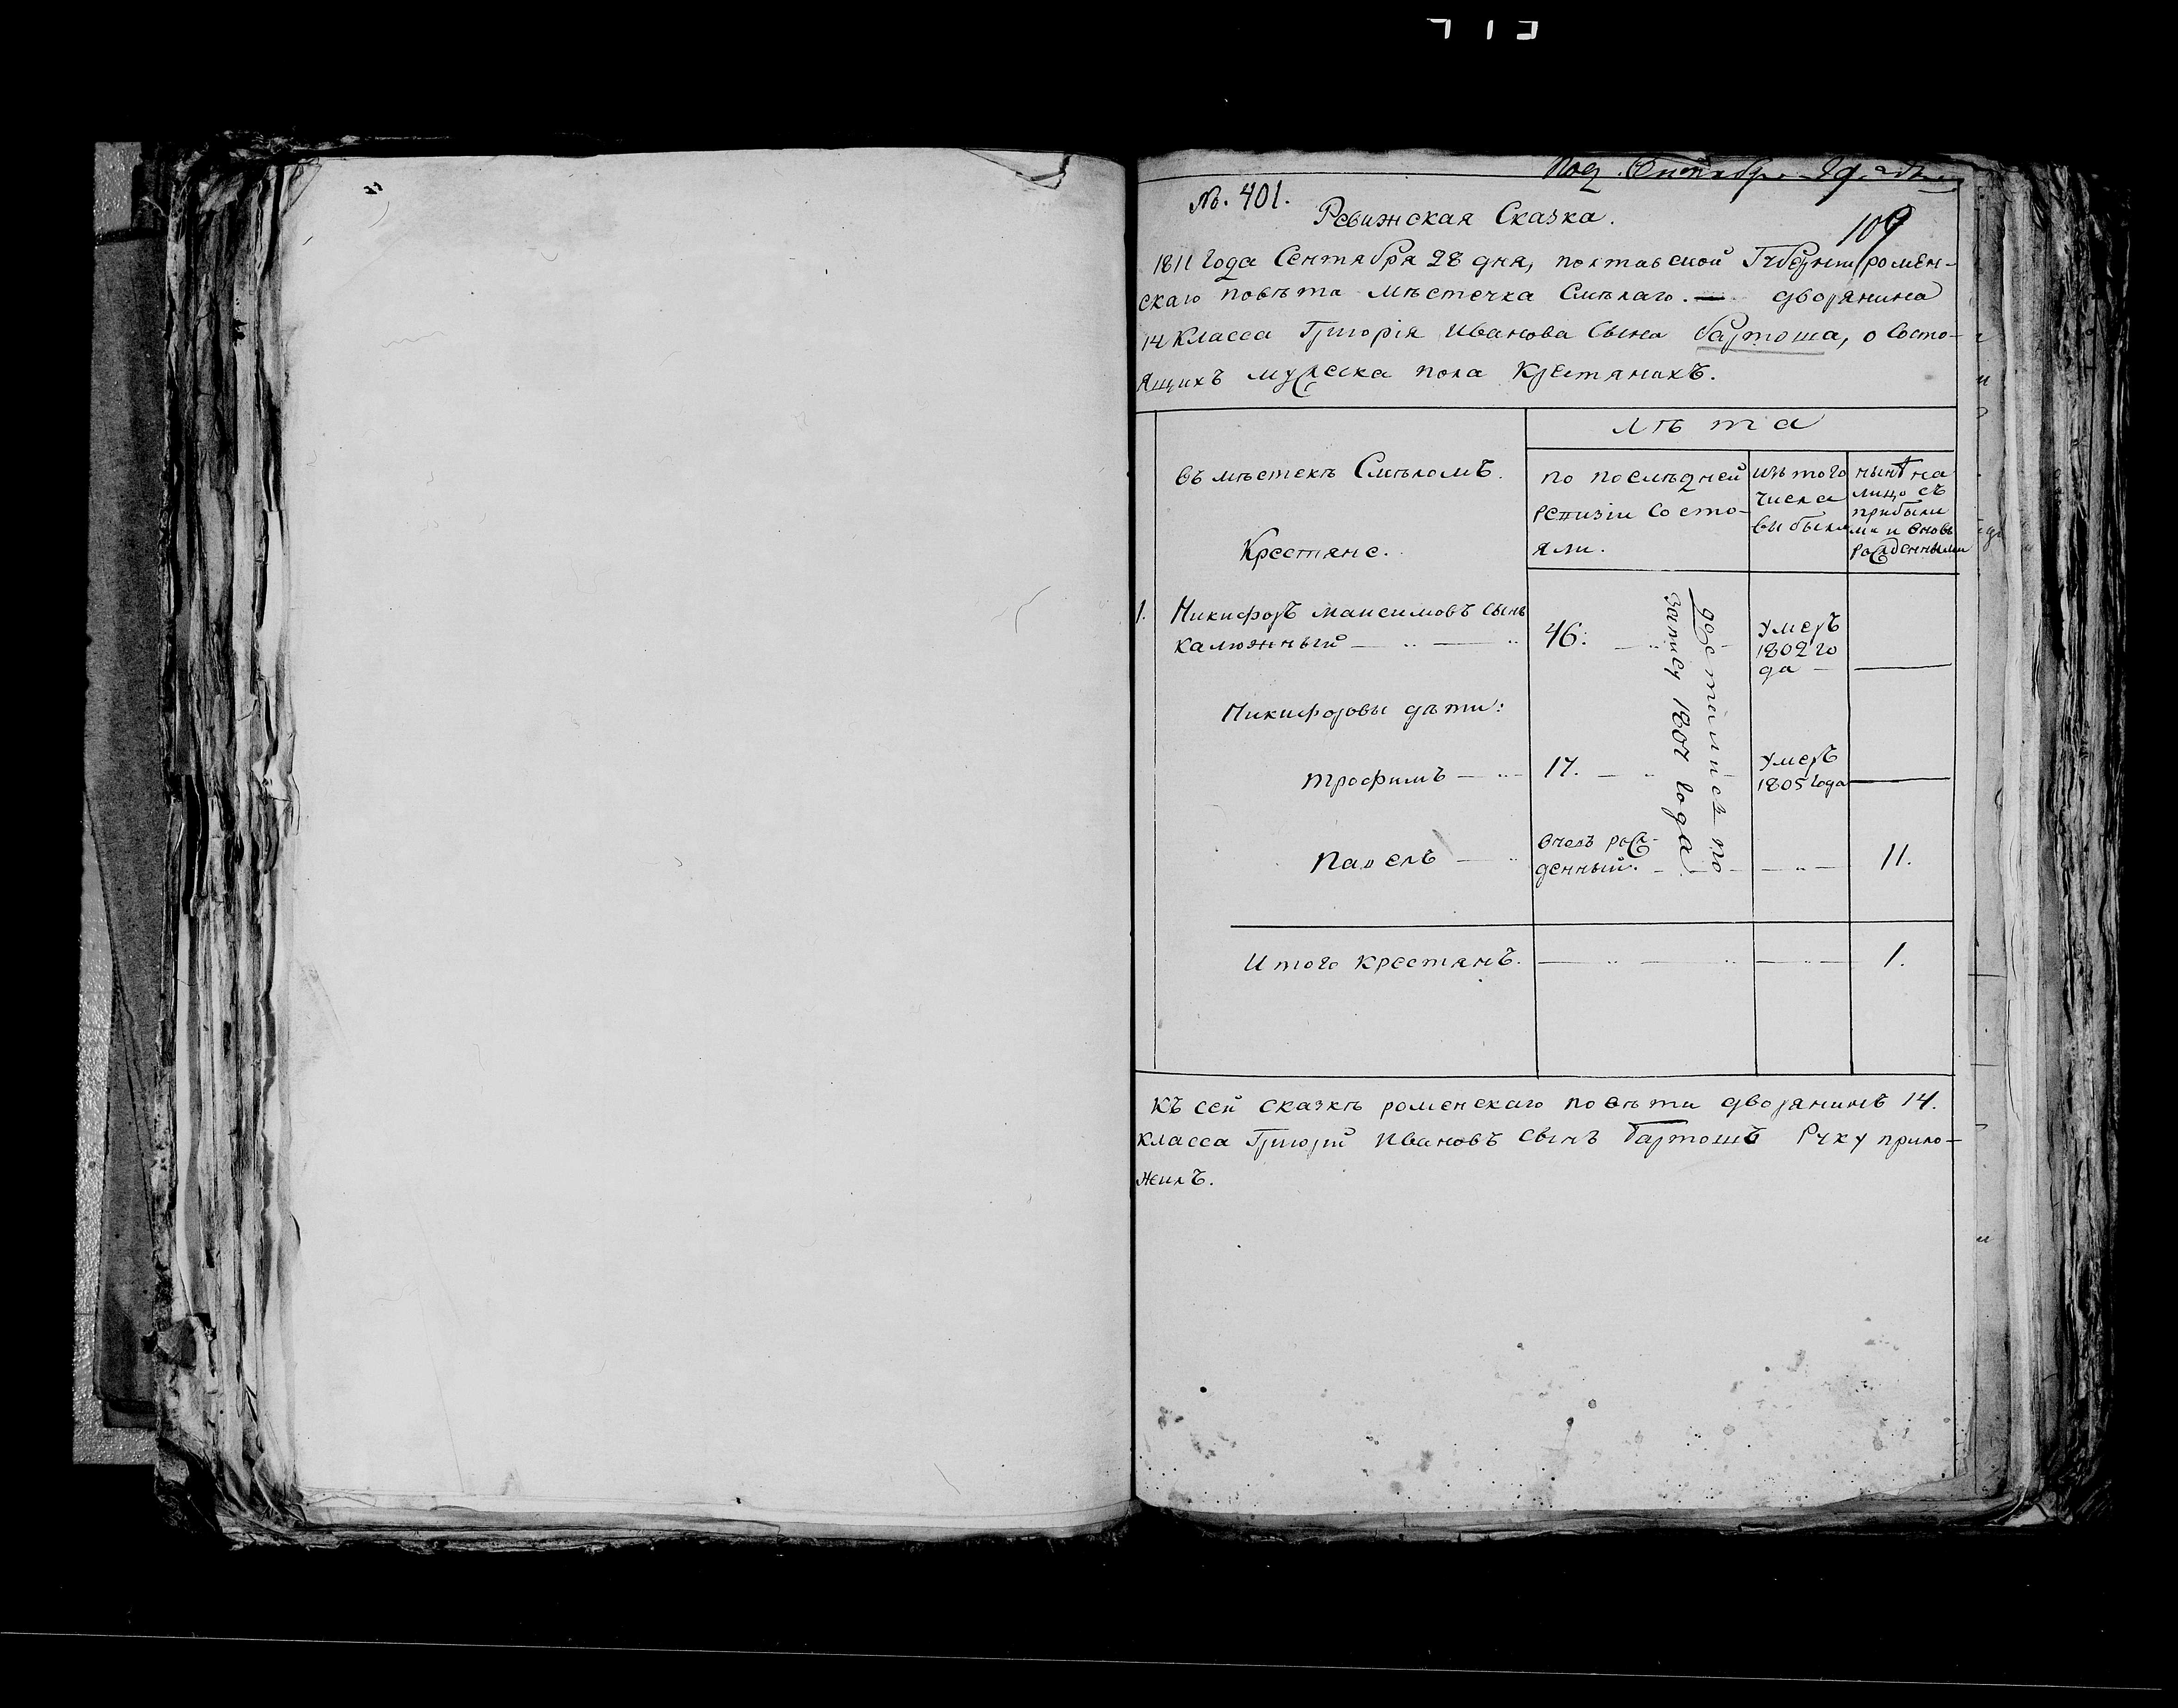 713
Под. Сентября 29. дня
№. 401.
Ревижская Сказка.
109
1811 Года Сентября 28 дня, полтавской Губерніи ромен-
скаго повѣта мѣстечка Смѣлаго. — дворянина
14 Класса Григорія Иванова Сына Бартоша, о Состо-
ящихъ мужеска пола Крестянихъ.
лѣта
въ мѣстекъ Смѣломъ.
Крестяне.
по послѣдней
ревизіи Состо-
яли.
изъ того
числа
выбыли
нынѣ на
лицо съ
прибыли
ми и вновь
рожденными
1. Никифоръ максимовъ сынъ
калюжный — 46.
Умеръ
1802 го
да —
Никифоровы дѣти:
трофимъ — 17.
Умеръ
1805 года
павелъ —
рож-
денный. 11.
достались по
1807 года
Итого крестянъ. 1.
Къ сей сказкѣ роменскаго повѣти дворянинъ 14.
класса Григорій Ивановъ сынъ Бартошъ Руку прило-
жилъ.